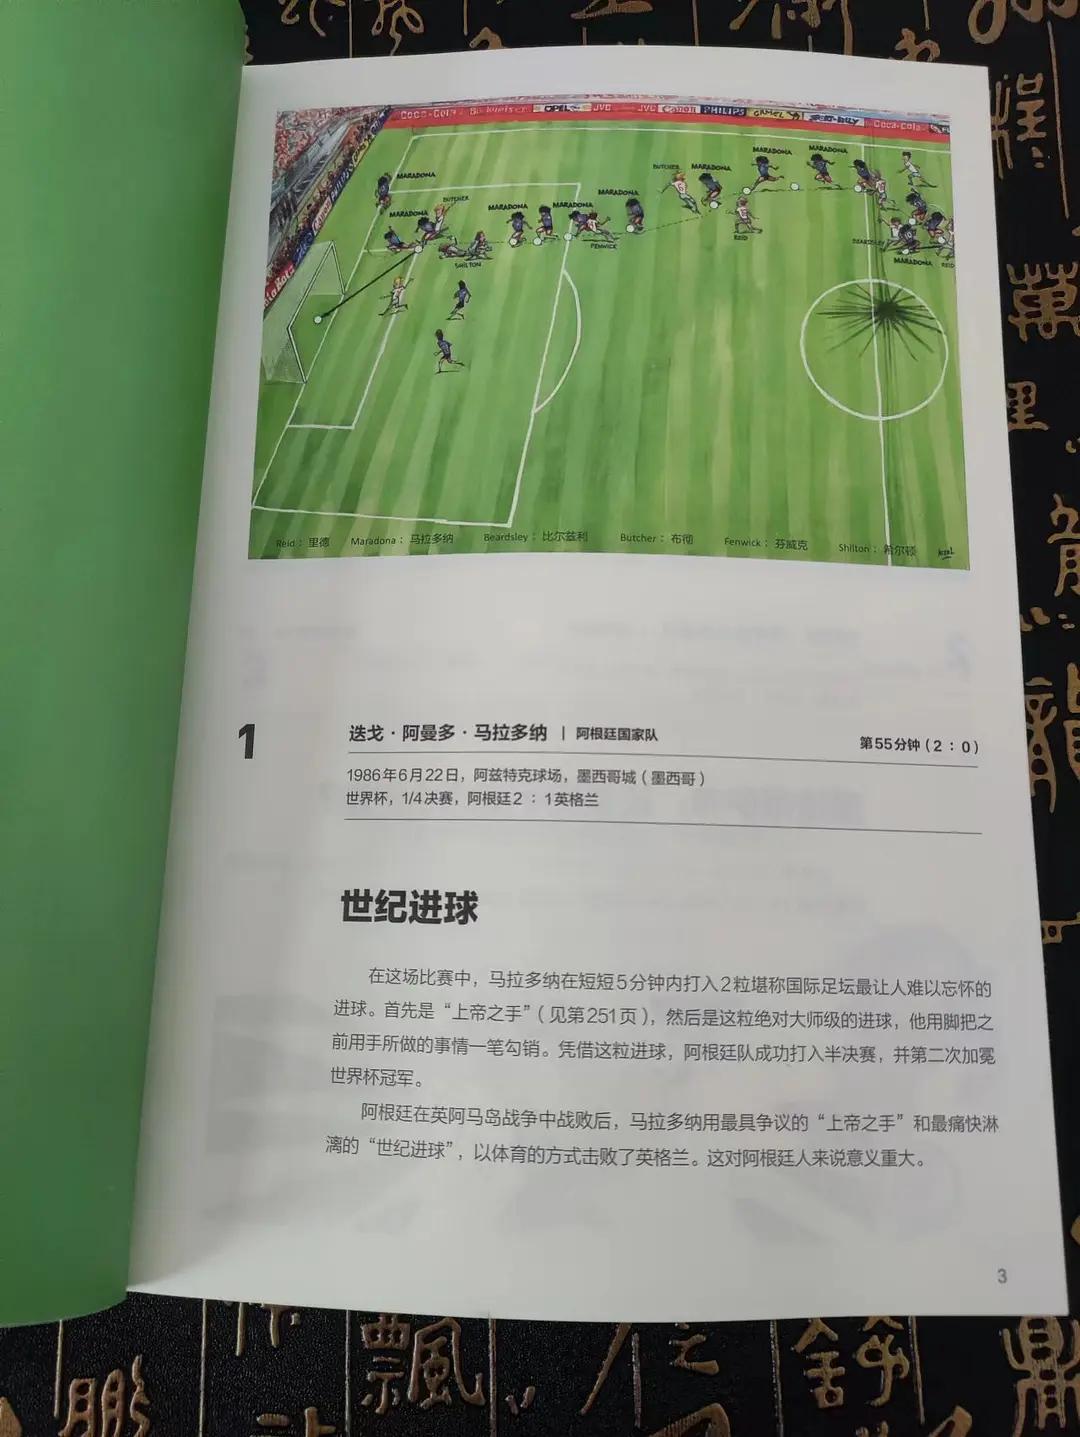 Coca-Cola Budweiser OPEL JVC JVC Canon PHILIPS CAMEL Coca-Cola
MARADONA
BUTCHER
MARADONA
MARADONA
MARADONA
MARADONA
BUTCHER
MARADONA
MARADONA
MARADONA
MARADONA
SHILTON
FENWICK
REID
BEARDSLEY
MARADONA
REID
Reid：里德 Maradona：马拉多纳 Beardsley：比尔兹利 Butcher：布彻 Fenwick：芬威克 Shilton：希尔顿
1
迭戈·阿曼多·马拉多纳 | 阿根廷国家队
第55分钟（2：0）
1986年6月22日，阿兹特克球场，墨西哥城（墨西哥）
世界杯，1/4决赛，阿根廷2：1英格兰
世纪进球
在这场比赛中，马拉多纳在短短5分钟内打入2粒堪称国际足坛最让人难以忘怀的
进球。首先是“上帝之手”（见第251页），然后是这粒绝对大师级的进球，他用脚把之
前用手所做的事情一笔勾销。凭借这粒进球，阿根廷队成功打入半决赛，并第二次加冕
世界杯冠军。
阿根廷在英阿马岛战争中战败后，马拉多纳用最具争议的“上帝之手”和最痛快淋
漓的“世纪进球”，以体育的方式击败了英格兰。这对阿根廷人来说意义重大。
3
程
萬
里
龍
飄
鵬
舒